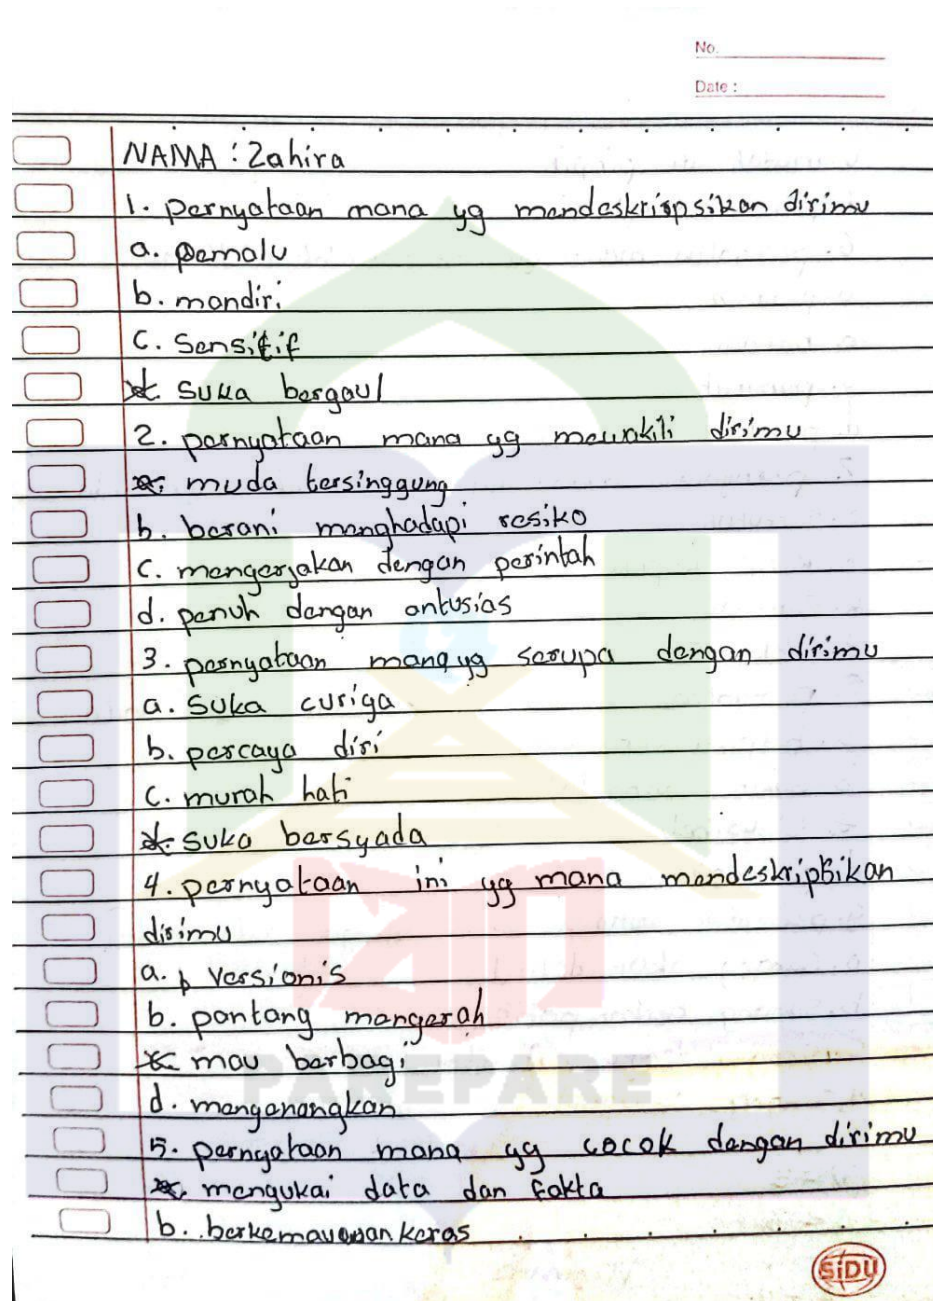 No.
Date :
NAMA : Zahira
1. pernyataan mana yg mendeskripsikan dirimu
a. pemalu
b. mandiri
c. Sensitif
d. suka bergaul
2. pernyataan mana yg mewakili dirimu
a. muda tersinggung
b. berani menghadapi resiko
c. mengerjakan dengan perintah
d. penuh dengan antusias
3. pernyataan mana yg serupa dengan dirimu
a. suka curiga
b. percaya diri
c. murah hati
d. suka bersyada
4. pernyataan ini yg mana mendeskripsikan
dirimu
a. versionis
b. pantang mangerah
c. mau berbagi
d. menganangkan
5. pernyataan mana yg cocok dengan dirimu
a. mengukai data dan fakta
b. berkemauanan keras
PAREPARE
SiDU